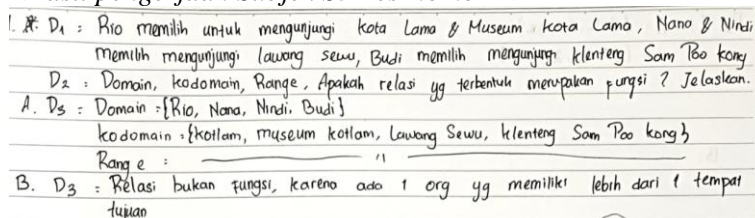 1. D1 : Rio memilih untuk mengunjungi kota Lama & Museum kota Lama, Nano & Nindi
memilih mengunjungi lawang sewu, Budi memilih mengunjungi klenteng Sam Poo kong
D2 : Domain, kodomain, Range, Apakah relasi yg terbentuk merupakan fungsi ? Jelaskan.
A. D3 : Domain = {Rio, Nana, Nindi, Budi}
kodomain = {kotlam, museum kotlam, Lawang Sewu, klenteng Sam Poo kong}
Range : —— " ——
B. D3 : Relasi bukan fungsi, karena ada 1 org yg memiliki lebih dari 1 tempat
tujuan